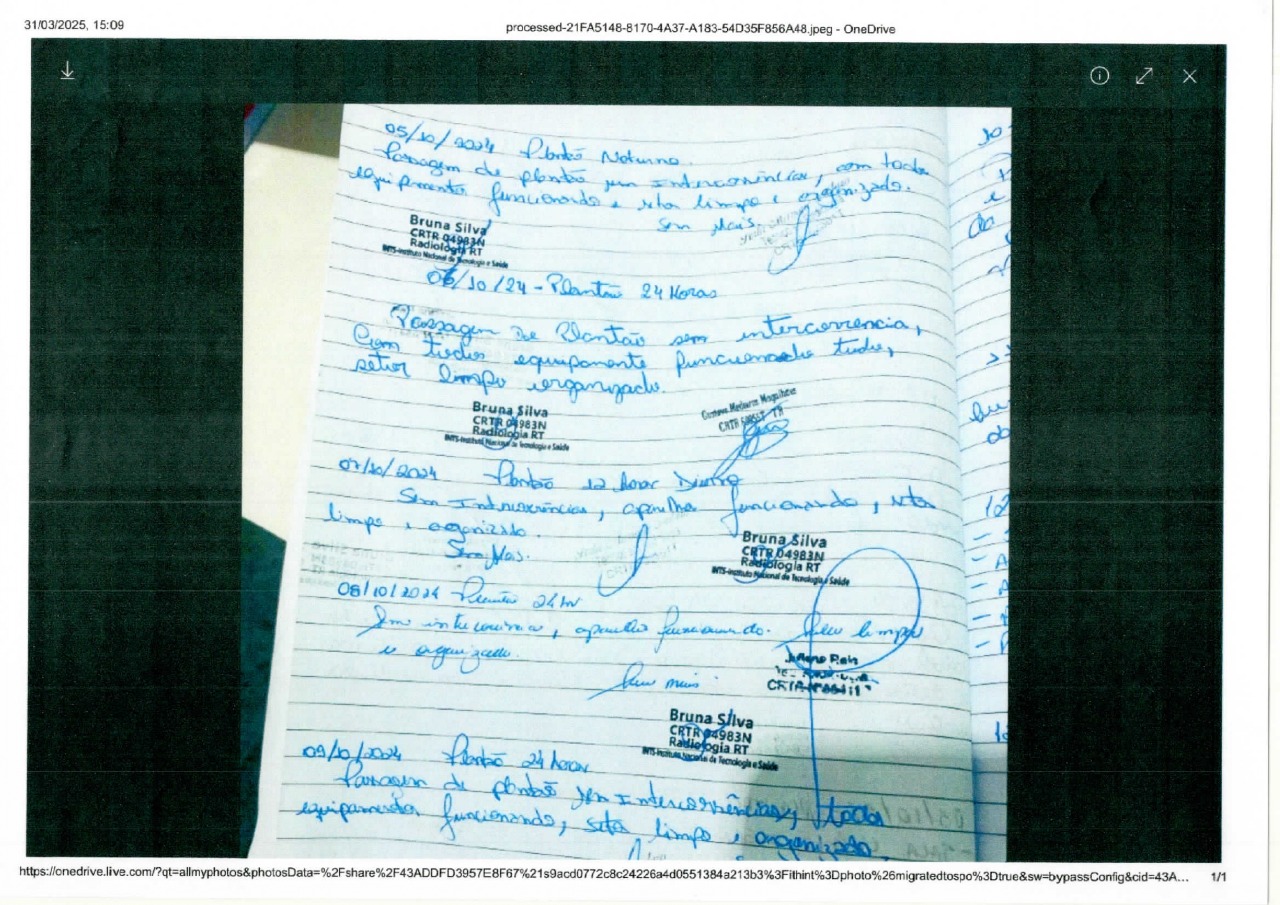 31/03/2025, 15:09
processed-21FA5148-8170-4A37-A183-54D35F856A48.jpeg - OneDrive
05/10/2024 Plantão Noturno.
Passagem de plantão sem Intercorrências, com todos
equipamentos funcionando e setor limpo e organizado.
Sem Mais.
Bruna Silva
CRTR 04983N
Radiologia RT
INTS-Instituto Nacional de Tecnologia e Saúde
06/10/24 - Plantão 24 Horas
Passagem De Plantão sem intercorrencia,
Com tudo equipamente funcionado tudo,
setor limpo organizado.
Bruna Silva
CRTR 04983N
Radiologia RT
INTS-Instituto Nacional de Tecnologia e Saúde
CRTR
07/10/2024 Plantão 12 horas Diurno
Sem Intercorrências, aparelho funcionando, setor
limpo e organizado.
Sem Mais.
Bruna Silva
CRTR 04983N
Radiologia RT
INTS-Instituto Nacional de Tecnologia e Saúde
08/10/2024 Plantão 24 hr
Sem intercorrencia, aparelho funcionando. Setor limpo
e organizado.
Sem mais
Bruna Silva
CRTR 04983N
Radiologia RT
INTS-Instituto Nacional de Tecnologia e Saúde
09/10/2024 Plantão 24 horas
Passagem de plantão sem Intercorrências, todos
equipamentos funcionando, setor limpo e organizado.
https://onedrive.live.com/?qt=allmyphotos&photosData=%2Fshare%2F43ADDFD3957E8F67%21s9acd0772c8c24226a4d0551384a213b3%3Fithint%3Dphoto%26migratedtospo%3Dtrue&sw=bypassConfig&cid=43A... 1/1